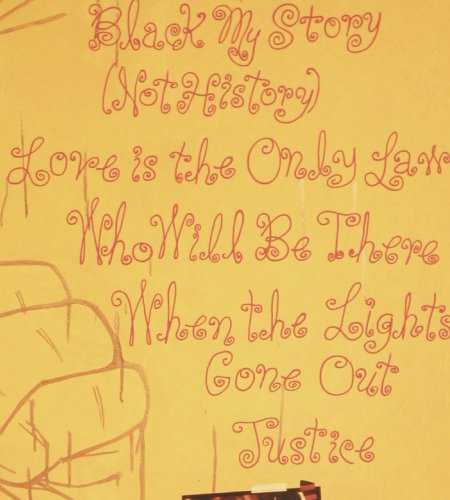 Black My Story
(Not History)
Love is the Only Law
Who Will Be There
When the Lights
Gone Out
Justice